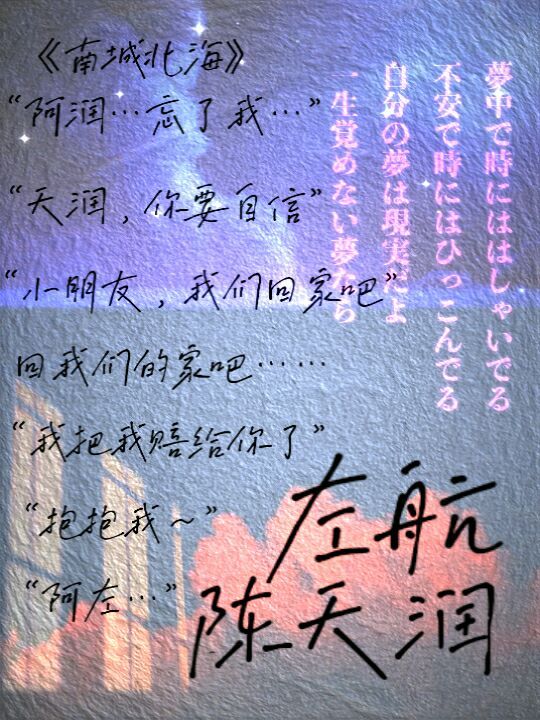 《南城北海》
“阿润…忘了我…”
“天润，你要自信”
“小朋友，我们回家吧”
回我们的家吧……
“我把我赔给你了”
“抱抱我～”
“阿左…”
左航
陈天润
夢中で時にははしゃいでる
不安で時にはひっこんでる
自分の夢は現実だよ
一生覚めない夢なら